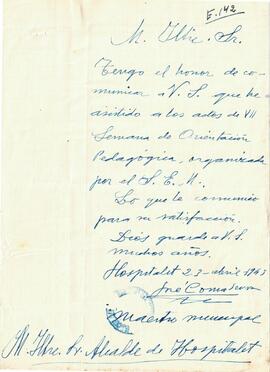 E.142
M. Iltre. Sr.
Tengo el honor de co-
municar a V. S. que he
asistido a los actos de VII
Semana de Orientación
Pedagógica, organizada
por el S. E. M.
Lo que le comunico
para su satisfacción.
Dios guarde a V. S.
muchos años.
Hospitalet 23-abril 1943
José
Maestro municipal
M. Iltre. Sr. Alcalde de Hospitalet